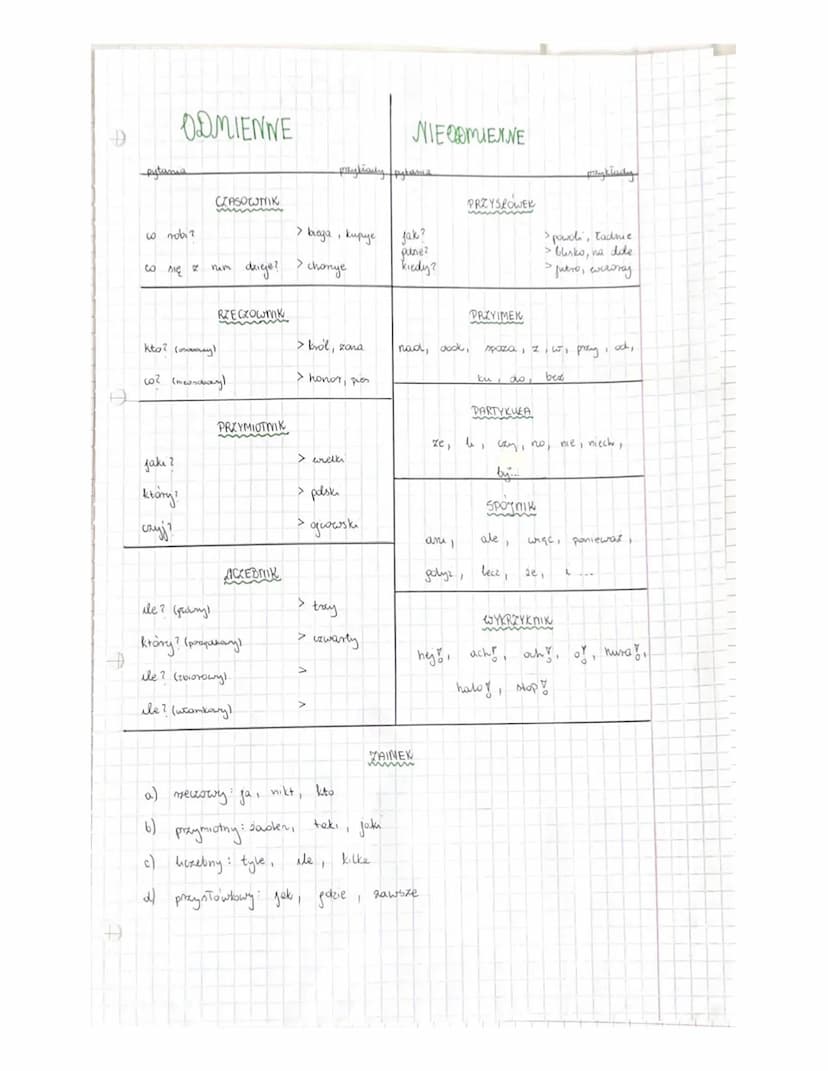 ODMIENNE
pytania przykłady
CZASOWNIK
co robi? > biega, kupuje
co się z nim dzieje? > choruje
RZECZOWNIK
kto? > król, żona
co? > honor, pies
PRZYMIOTNIK
jaki? > wielki
który? > polski
czyj? > ojcowski
LICZEBNIK
ile? (główny) > trzy
który? (porządkowy) > czwarty
ile? (zbiorowy) >
ile? (ułamkowy) >
NIEODMIENNE
pytania przykłady
PRZYSŁÓWEK
jak? > powoli, ładnie
gdzie? > blisko, na dole
kiedy? > jutro, wczoraj
PRZYIMEK
nad, spoza, z, w, przy, od,
ku, do, bez
PARTYKUŁA
że, li, czy, no, nie, niech,
by...
SPÓJNIK
ani, ale, więc, ponieważ,
gdyż, lecz, że, i ...
WYKRZYKNIK
hej!, ach!, och!, o!, hura!,
halo!, stop!
ZAIMEK
a) rzeczowy: ja, nikt, kto
b) przymiotny: żaden, taki, jaki
c) liczebny: tyle, ile, kilka
d) przysłówkowy: jak, gdzie, zawsze